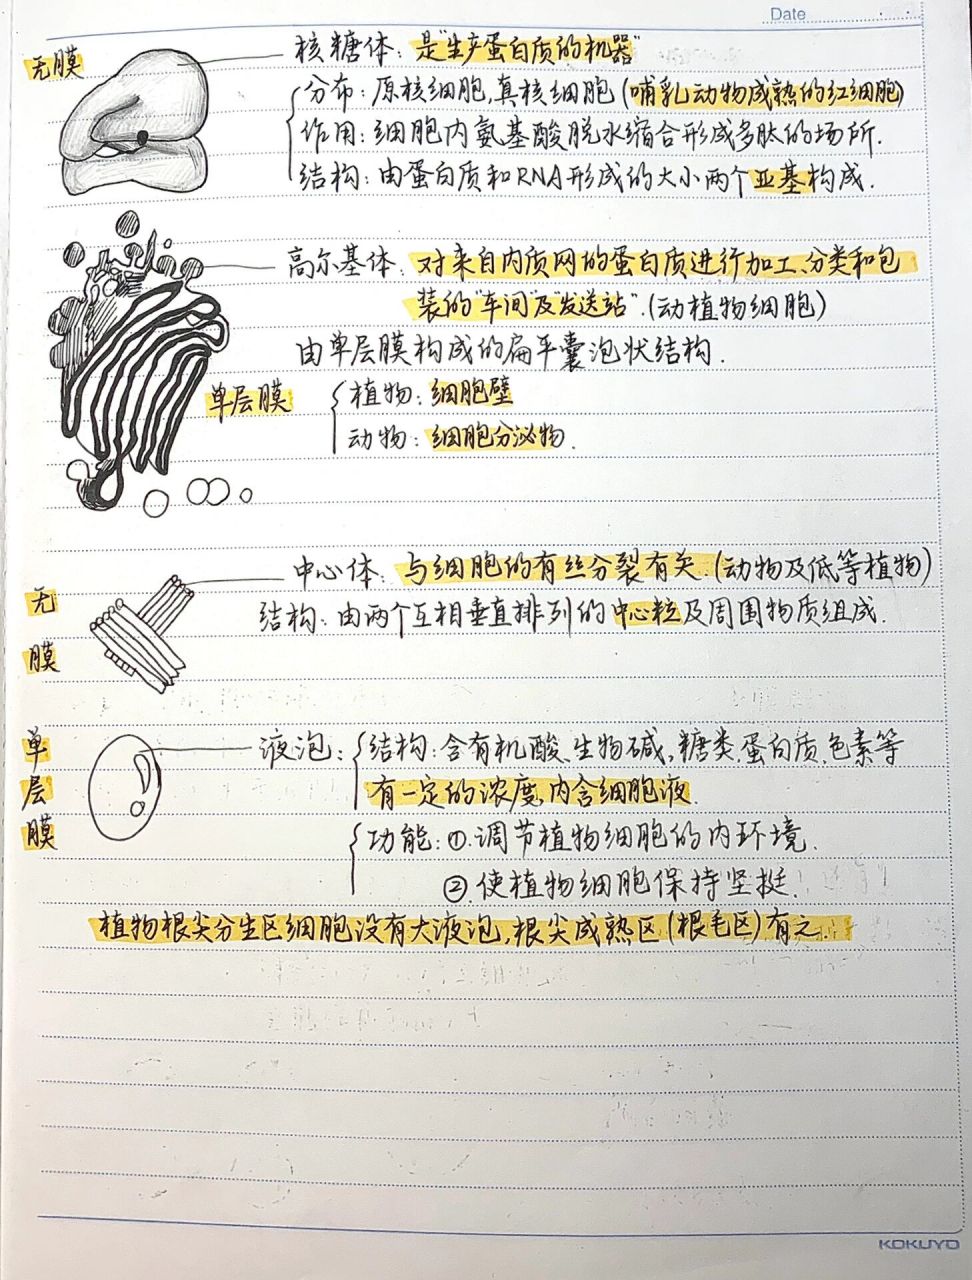 Date
无膜
核糖体：是"生产蛋白质的机器"
分布：原核细胞,真核细胞(哺乳动物成熟的红细胞)
作用：细胞内氨基酸脱水缩合形成多肽的场所.
结构：由蛋白质和RNA形成的大小两个亚基构成.
高尔基体：对来自内质网的蛋白质进行加工、分类和包
装的"车间"及"发送站".(动植物细胞)
由单层膜构成的扁平囊泡状结构.
单层膜
植物：细胞壁
动物：细胞分泌物.
中心体：与细胞的有丝分裂有关.(动物及低等植物)
无膜
结构：由两个互相垂直排列的中心粒及周围物质组成.
单层膜
液泡：结构：含有机酸、生物碱,糖类.蛋白质.色素等
有一定的浓度,内含细胞液.
功能：①.调节植物细胞的内环境.
②.使植物细胞保持坚挺.
植物根尖分生区细胞没有大液泡,根尖成熟区(根毛区)有之.
KOKUYO